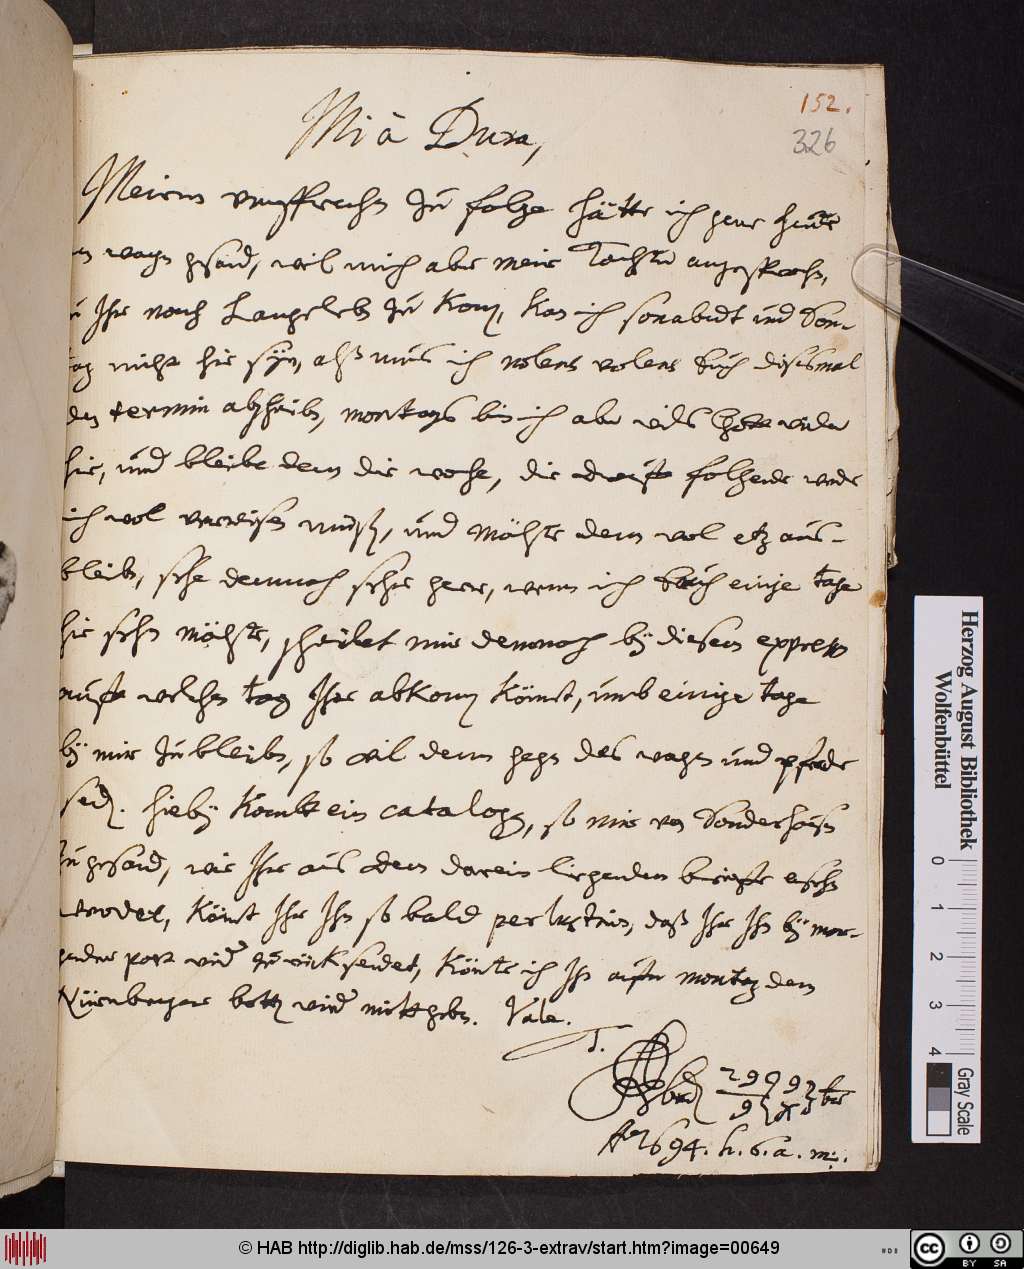 152.
326
Mi à Dura,
Meinem versprechen zu folge hätte ich gern heute
wagen gesand, weil mich aber meine Tochter angesprochen,
Ihr nach Langeleben zu kom, kan ich sonabent und Son-
nicht hir syn, alß mus ich nolens volens disesmal
den termin abschreiben, montags bin ich aber wils Gott wider
hir, und bleibe den die woche, die folgende werde
ich wol verreisen muß, und möchte den wol etz aus-
bleiben, sehe dennoch sehr gern, wenn ich euch einige tage
hir sehn möchte, schreibet mir dennoch by diesem expressen
auf welchen tag Ihr abkom könnt, umb einige tage
by mir zu bleiben, so wil den gegen des wagen und pferde
send. hieby kombt ein catalogus, so mir von Sonderhausen
zu gesand, wie Ihr aus dem darein liegenden briefe ersehn
werdet, könt Ihr Ihn so bald perlustrirn, daß Ihr Ihn by mor-
gender post wider zu rück sendet, könte ich Ihn auf montag dem
Nürnberger botten wider mitt geben. Vale.
T.
1694. h. 6. a. m.
Herzog August Bibliothek
Wolfenbüttel
0 1 2 3 4
Gray Scale
© HAB http://diglib.hab.de/mss/126-3-extrav/start.htm?image=00649
cc BY SA